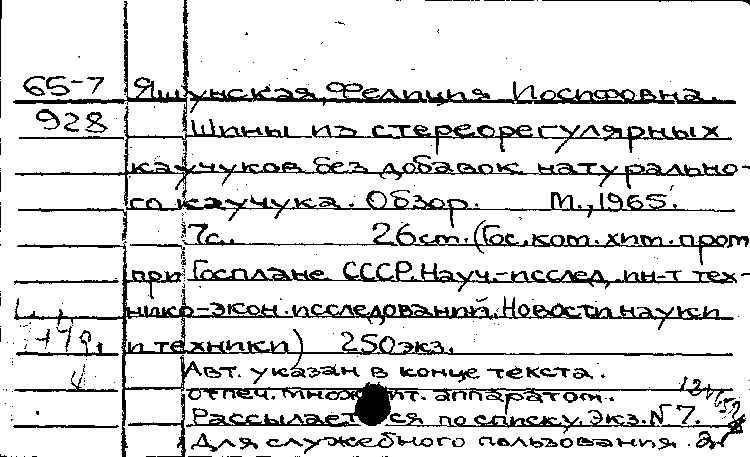 65-7 Яшунская, Фелиция Иосифовна.
928 Шины из стереорегулярных
каучуков без добавок натурально-
го каучука. Обзор. М., 1965.
7с. 26см. (Гос. ком. хим. пром
при Госплане СССР. Науч.-исслед. ин-т тех-
нико-экон. исследований. Новости науки
и техники) 250экз.
Авт. указан в конце текста.
отпеч. множит. аппаратом.
Рассылается по списку. Экз. N 7.
Для служебного пользования.